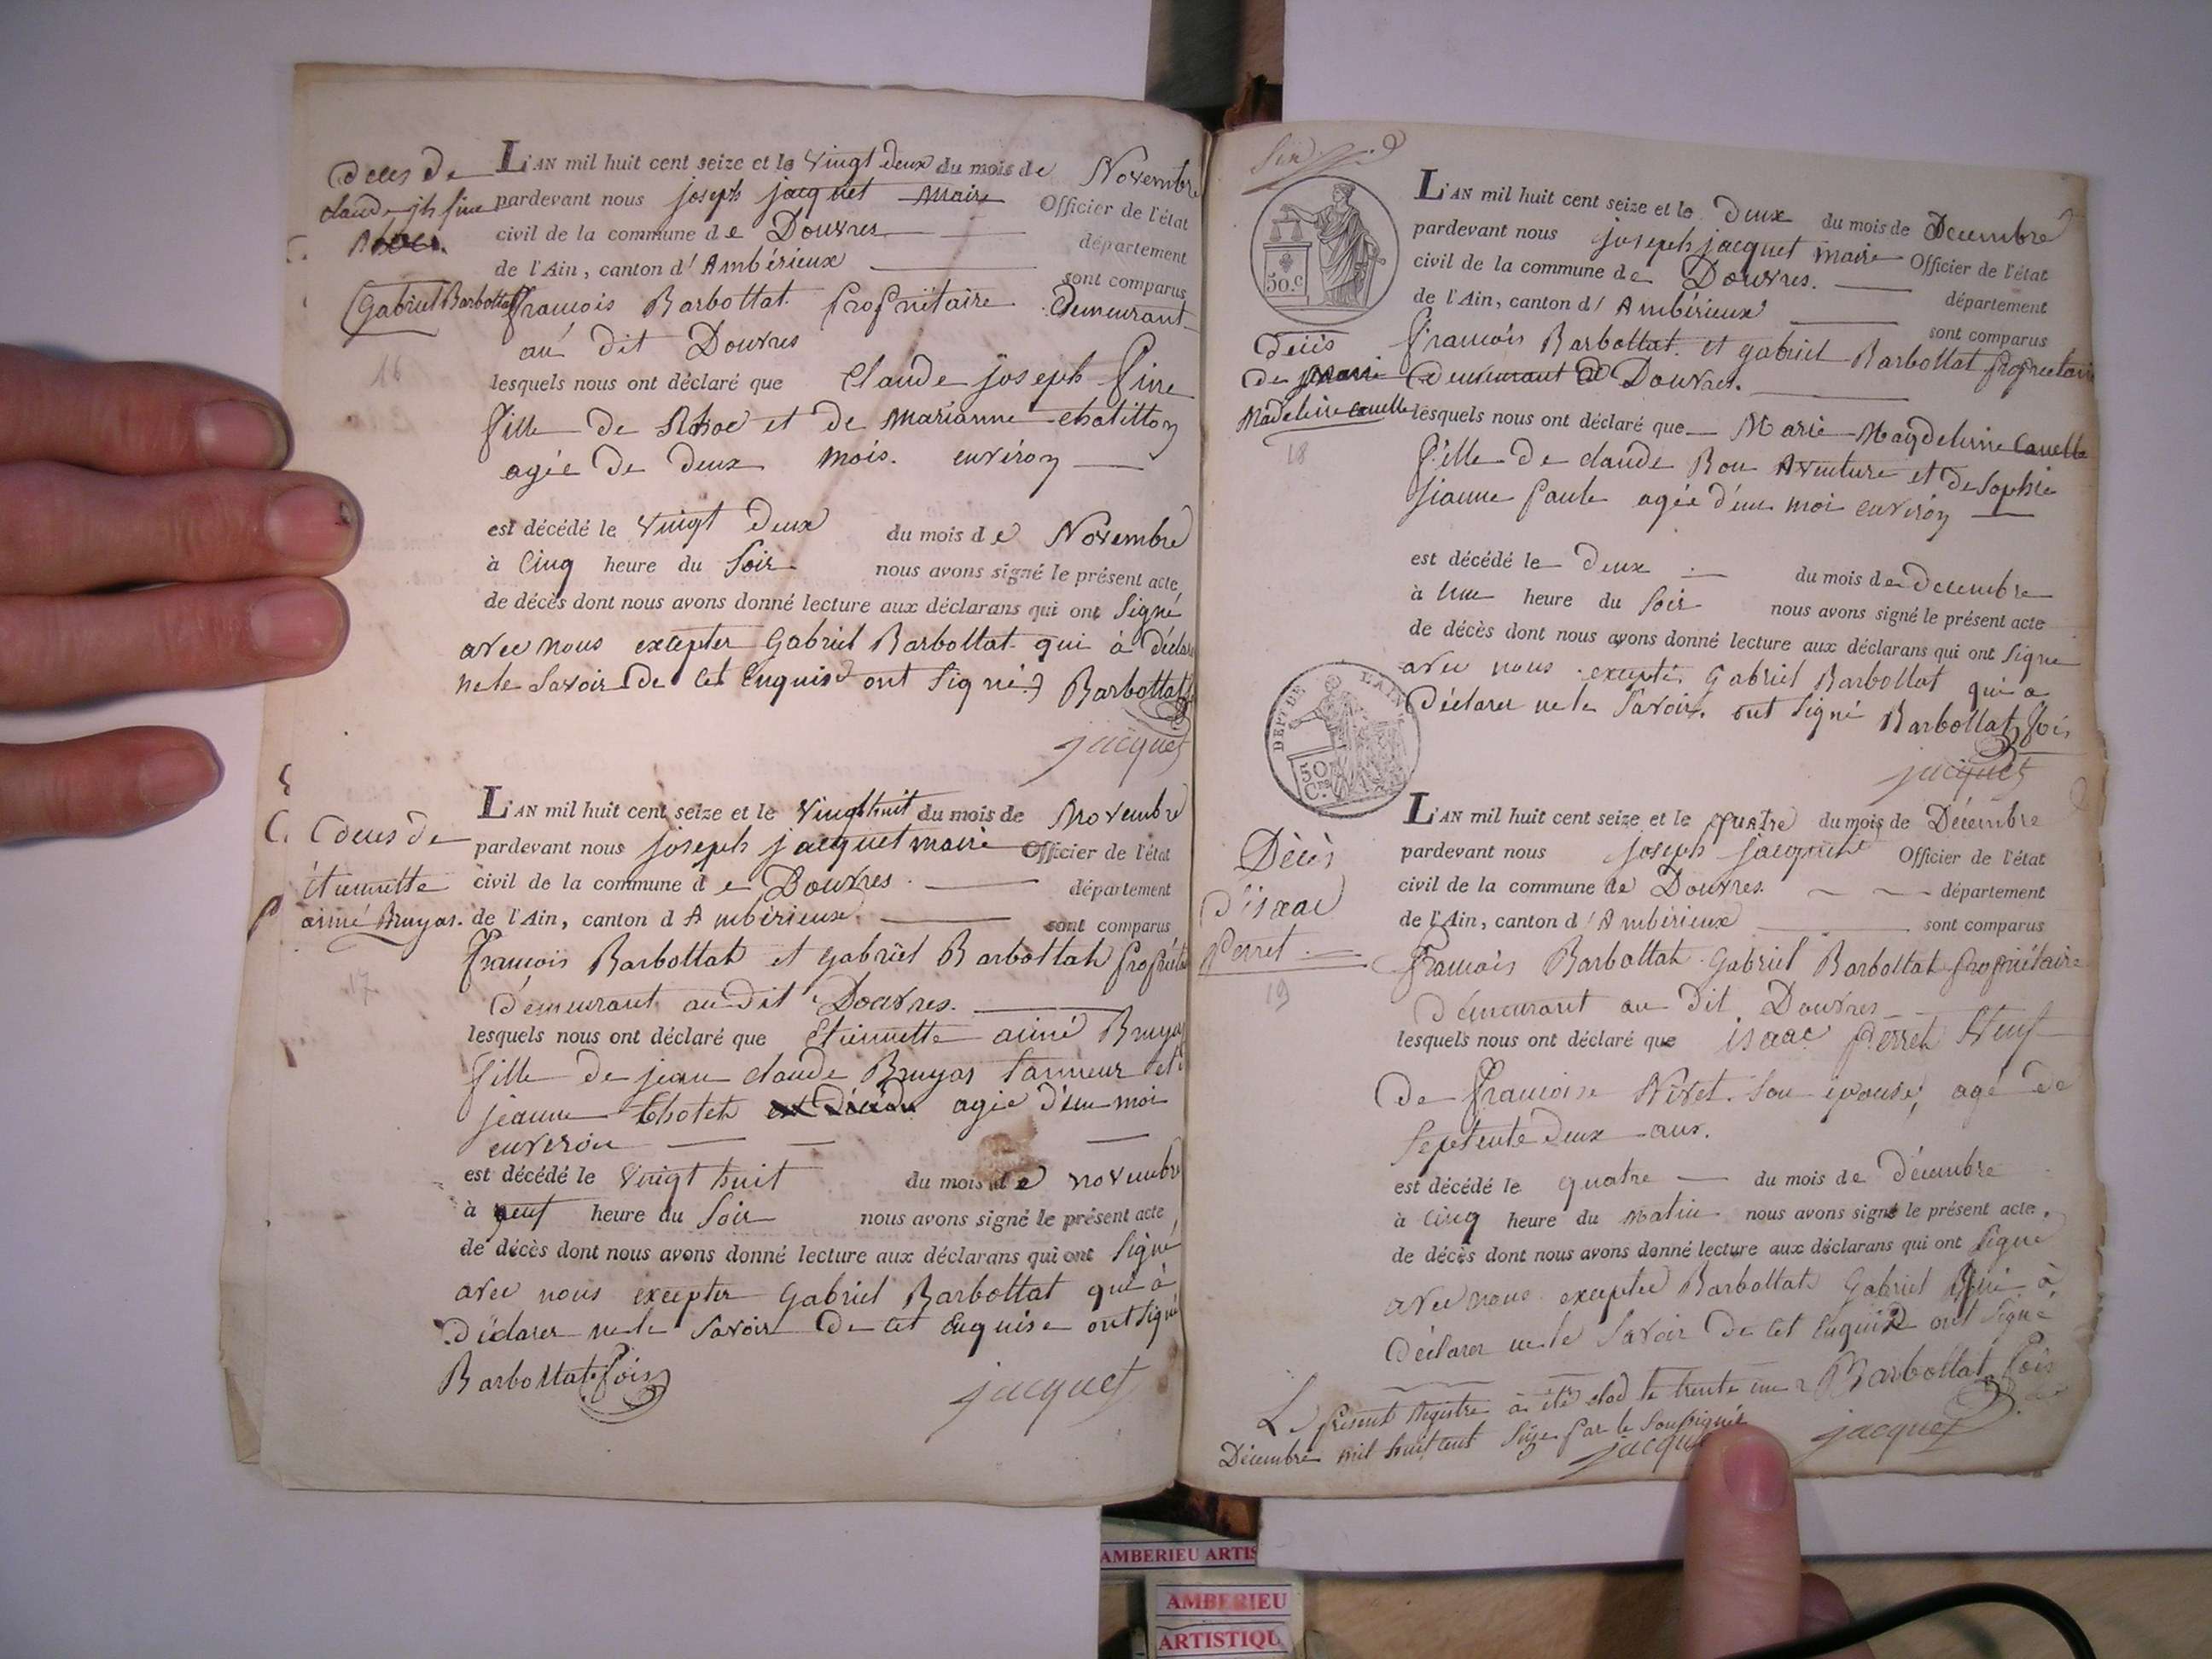 Deces De
Claude jh fine
(Gabriel Barbottat
16
L'AN mil huit cent seize et le vingt deux du mois de Novembre
pardevant nous joseph jacquet Maire Officier de l'état
civil de la commune de Douvres département
de l'Ain, canton d'Ambérieux sont comparus
françois Barbottat propriétaire Demeurant
au dit Douvres
lesquels nous ont déclaré que Claude joseph fine
fille de et de Marianne chatillon
agée de deux mois environ
est décédé le vingt Deux du mois de Novembre
à Cinq heure du soir nous avons signé le présent acte
de décès dont nous avons donné lecture aux déclarans qui ont signé
avec nous excepter Gabriel Barbottat qui à Déclaré
ne le savoir De cet Enquis ont signé Barbottat
jacquet
C. Deces De
étiennette
aimé Bruyas.
17
L'AN mil huit cent seize et le vingt huit du mois de Novembre
pardevant nous joseph jacquet maire Officier de l'état
civil de la commune de Douvres département
de l'Ain, canton d'Ambérieux sont comparus
françois Barbottat et gabriel Barbottat propriétaire
demeurant au dit Douvres.
lesquels nous ont déclaré que Etiennette aimé Bruyas
fille de jean claude Bruyas tanneur et
jeanne agée d'un moi
environ
est décédé le vingt huit du mois de novembre
à neuf heure du soir nous avons signé le présent acte,
de décès dont nous avons donné lecture aux déclarans qui ont signé
avec nous excepter Gabriel Barbottat qui à
Déclarer ne le savoir De cet Enquise ont signé
Barbottat fois
jacquet
50.c
Décès
de Marie
Madeleine Cauelle
18
L'AN mil huit cent seize et le Deux du mois de Decembre
pardevant nous joseph jacquet maire Officier de l'état
civil de la commune de Douvres. département
de l'Ain, canton d'Ambérieux sont comparus
françois Barbottat. et gabriel Barbottat propriétaire
Demeurant Douvres.
lesquels nous ont déclaré que Marie Magdeleine Cauelle
fille de claude Bon Aventure et de Sophie
jeanne paule agée d'un moi environ
est décédé le Deux du mois de Decembre
à une heure du soir nous avons signé le présent acte
de décès dont nous avons donné lecture aux déclarans qui ont signé
avec nous excepté Gabriel Barbottat qui a
Déclarer ne le savoir. ont signé Barbottat fois
jacquet
DEPT DE L'AIN.
50 Ces
Décès
d'isaac
Perret
19
L'AN mil huit cent seize et le quatre du mois de Décembre
pardevant nous joseph jacquet Officier de l'état
civil de la commune de Douvres. département
de l'Ain, canton d'Ambérieux sont comparus
françois Barbottat Gabriel Barbottat propriétaire
Demeurant au dit Douvres
lesquels nous ont déclaré que isaac Perret Veuf
de françoise Nivet. son épouse, agé de
septente deux ans.
est décédé le quatre du mois de décembre
à Cinq heure du matin nous avons signé le présent acte.
de décès dont nous avons donné lecture aux déclarans qui ont signé
avec nous exceptée Barbottat Gabriel qui à
Déclarer ne le savoir De cet Enquis ont signé
Barbottat fois
Le présent Registre à été clod le trente un
Décembre mil huit cent seize par le soussigné
jacquet
jacquet
AMBERIEU ARTIS
AMBERIEU
ARTISTIQU